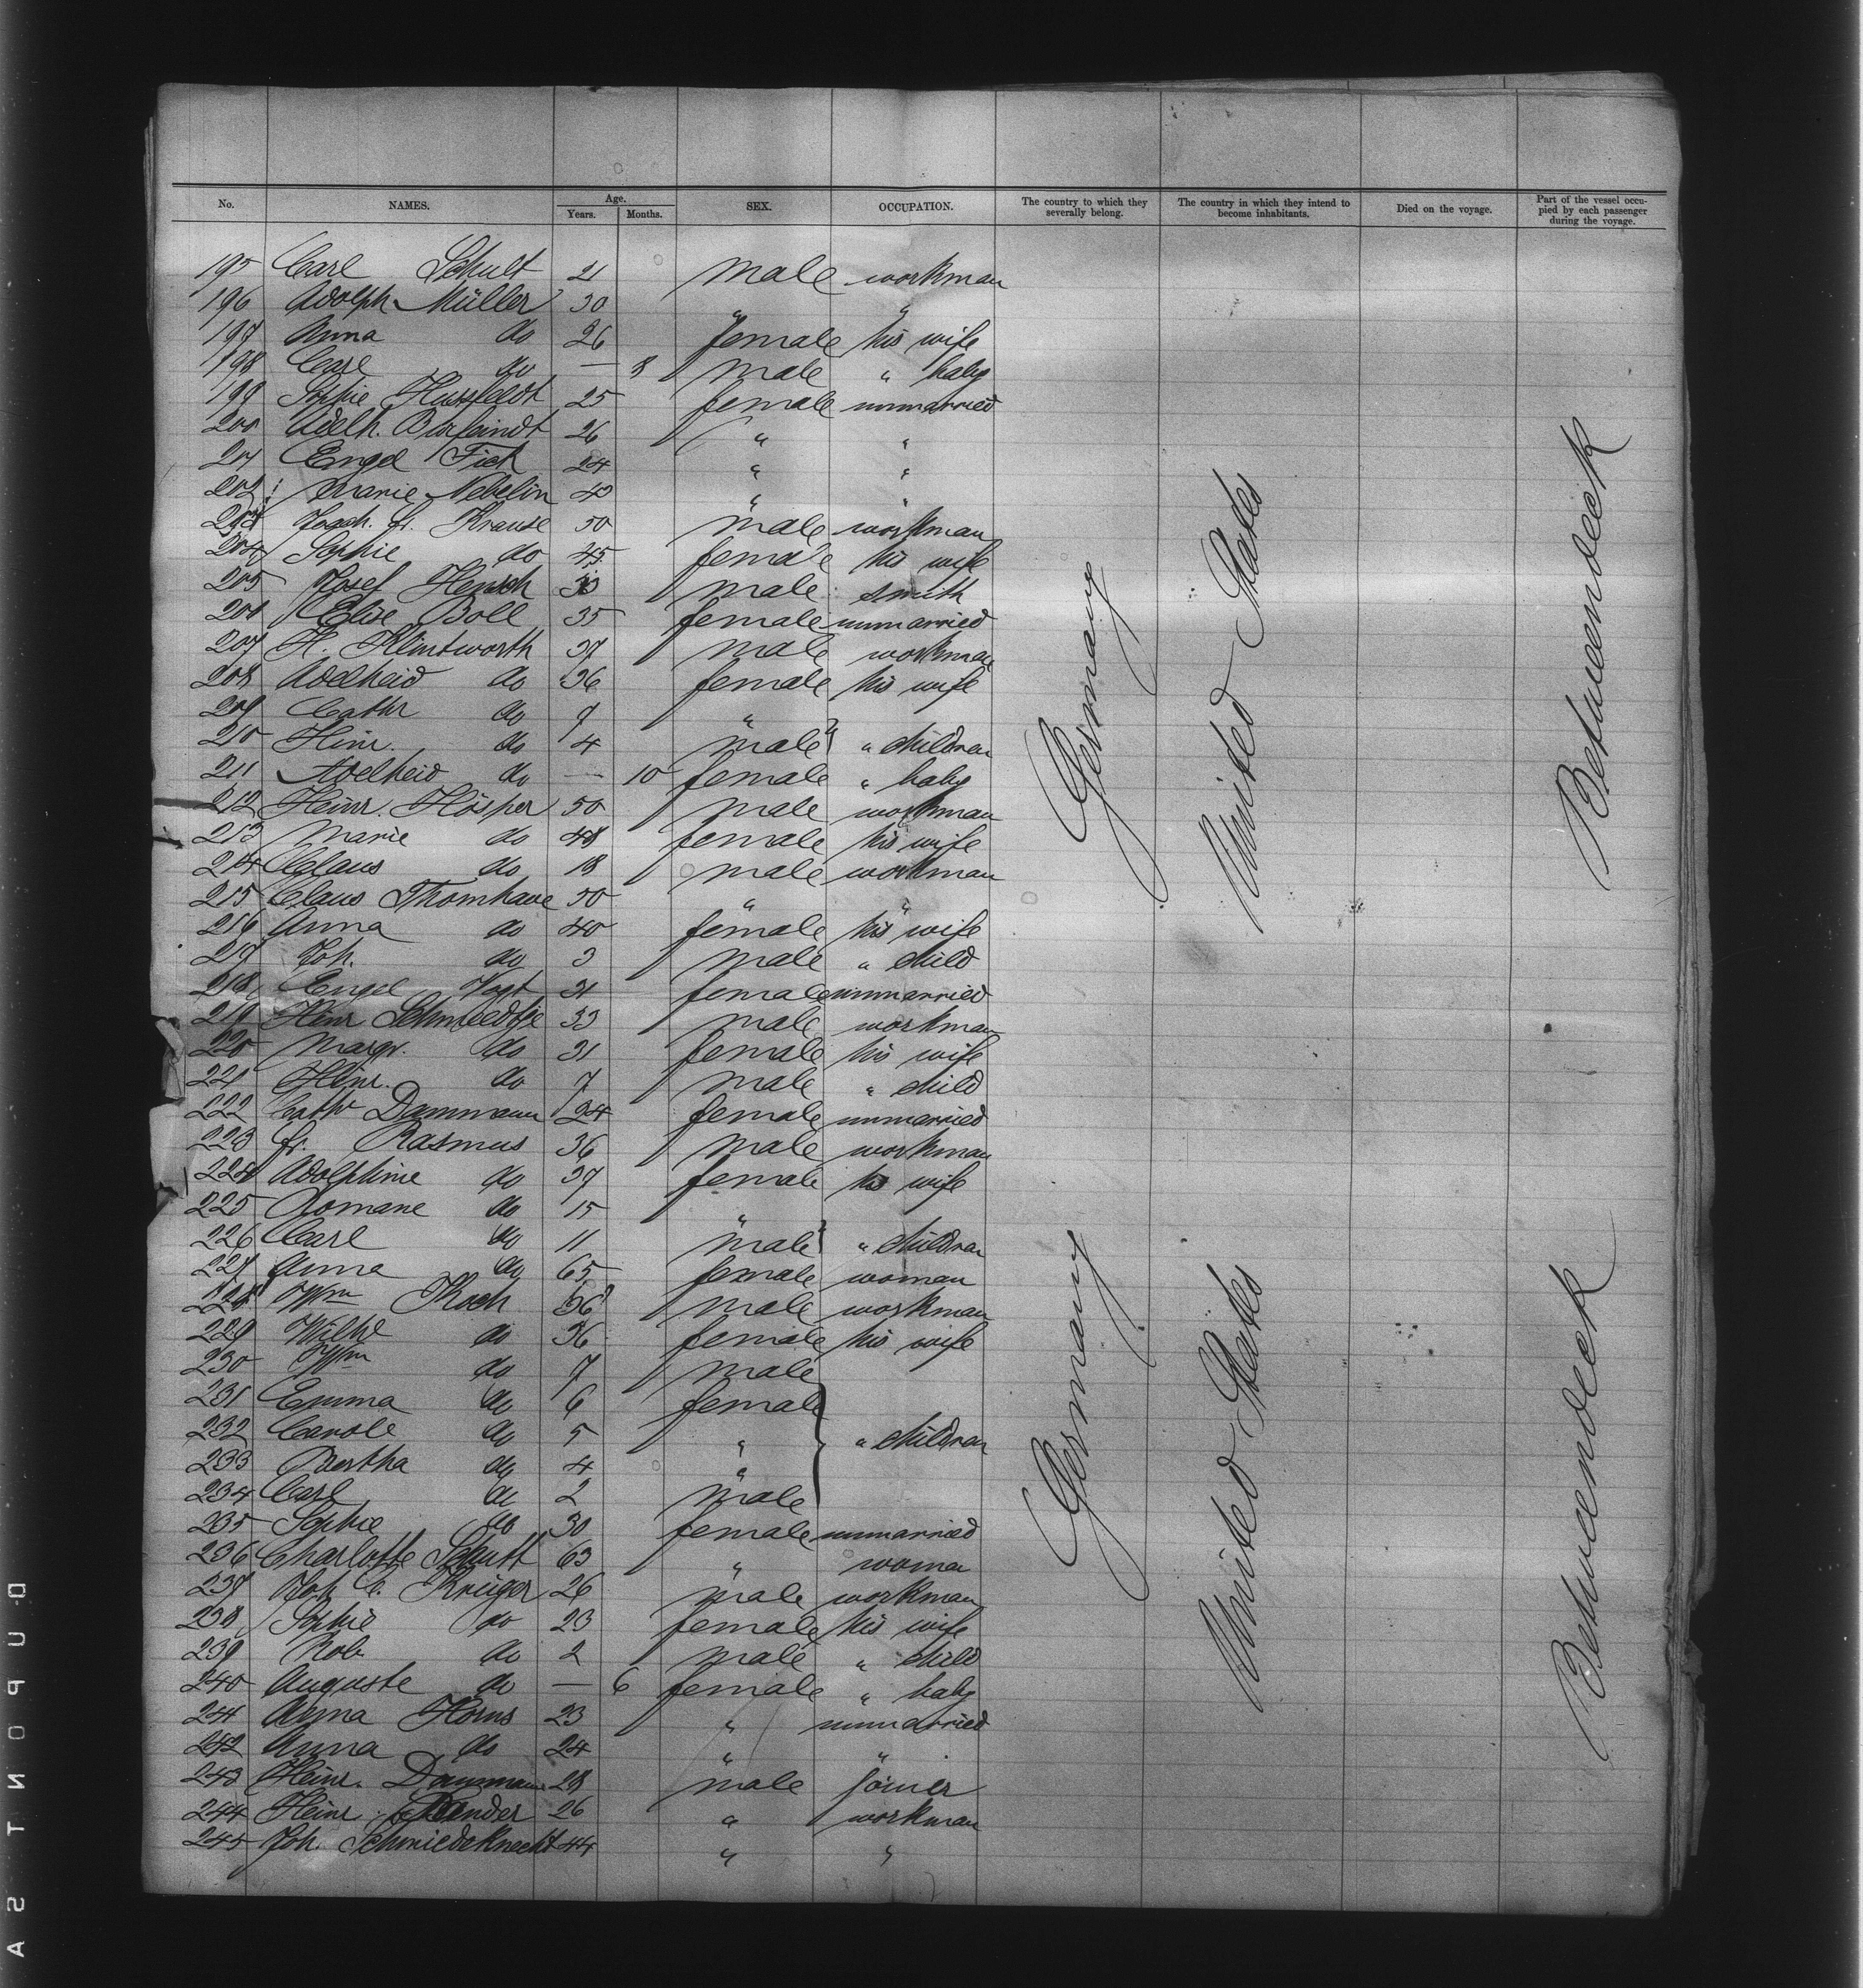 No. NAMES. Age. Years. Months. SEX. OCCUPATION. The country to which they severally belong. The country in which they intend to become inhabitants. Died on the voyage. Part of the vessel occupied by each passenger during the voyage.
195 Carl Schult 21 male workman
196 Adolph Müller 30 " "
197 Anna do 26 female his wife
198 Carl do — 8 male " baby
199 Sophie 25 female unmarried
200 Adelh. Burfeindt 26 " "
201 Engel Fick 24 " "
202 Marie Nebelin 43 " "
203 Joach. Fr. Krause 50 male workman
204 Sophie do 45 female his wife
205 Josef male smith
206 Elise Boll 35 female unmarried
207 H. Klintworth 37 male workman
208 Adelheid do 36 female his wife
209 Cathr do 9 "
210 Hinr. do 4 male " children
211 Adelheid do — 10 female " baby
212 Heinr. Hösper 50 male workman
213 Marie do 48 female his wife
214 Claus do 18 male workman
215 Claus Thomhave 50 " "
216 Anna do 40 female his wife
217 Joh. do 3 male " child
218 Engel Vogt 31 female unmarried
219 Hinr 33 male workman
220 Margr. do 31 female his wife
221 Hinr. do 7 male " child
222 Cathr Dammann 24 female unmarried
223 Fr. Rasmus 36 male workman
224 Adolphine do 37 female his wife
225 do 15 "
226 Carl do 11 male " children
227 Anna do 65 female woman
228 Wm Koch 36 male workman
229 Wilhe do 36 female his wife
230 Wm do 7 male
231 Emma do 6 female
232 Carole do 5 " " children
233 Bertha do 4 "
234 Carl do 2 male
235 Sophie do 30 female unmarried
236 Charlotte Schutt 63 " woman
237 Joh. C. Krüger 26 male workman
238 Sophie do 23 female his wife
239 Rob do 2 male " child
240 Auguste do — 6 female " baby
241 Anna Horns 23 " unmarried
242 Anna do 24 " "
243 Heinr. Dammann 28 male joiner
244 Heinr. 26 " workman
245 Joh. Schmiedeknecht 44 " "
Germany
United States
Betweendeck
Germany
United States
Betweendeck